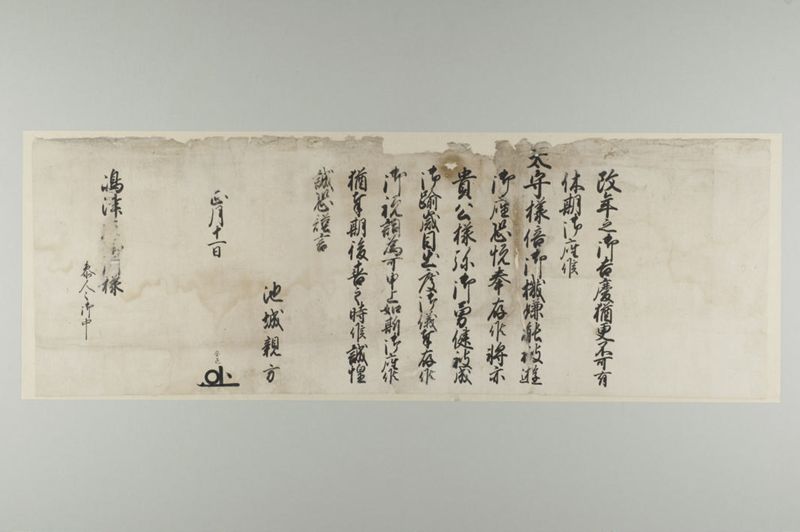 改年之御吉慶猶更不可有
休期御座候
太守様倍御機嫌能被遊
御座恐悦奉存候将亦
貴公様弥御勇健被成
御踰歳目出度御儀奉存候
御祝詞為可申上如斯御座候
猶奉期後喜之時候誠惶
誠恐謹言
池城親方
正月十一日
嶋津 様
参人々御中